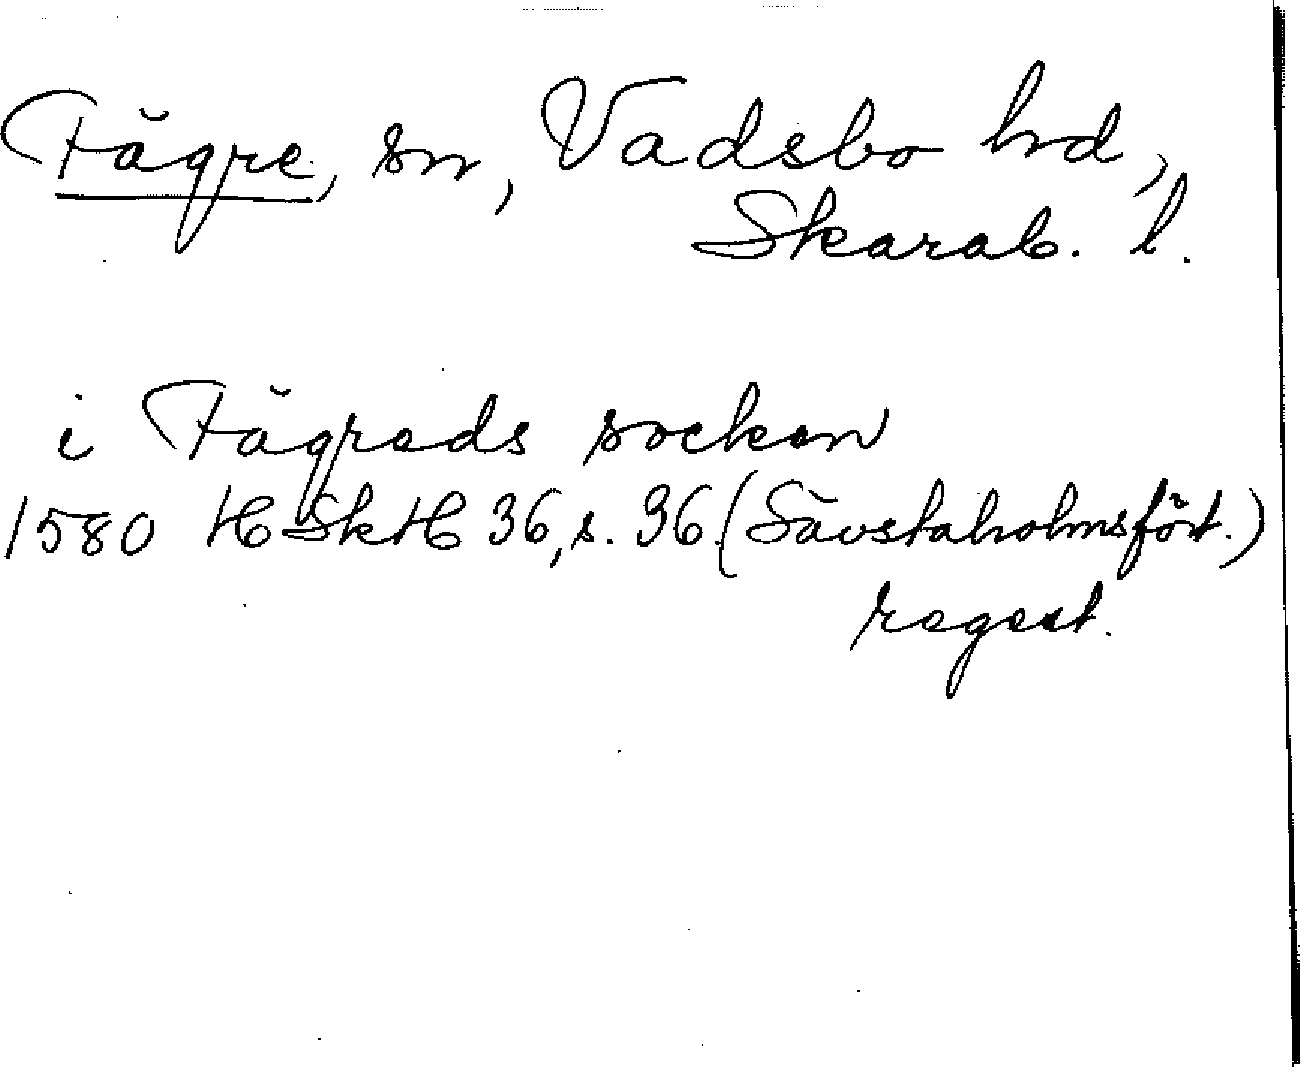 Fägre, sn, Vadsbo hd,
Skarab. l.
i Fägreds socken
1580 HSkH 36, s. 36 (Sävstaholmsfört.)
regest.